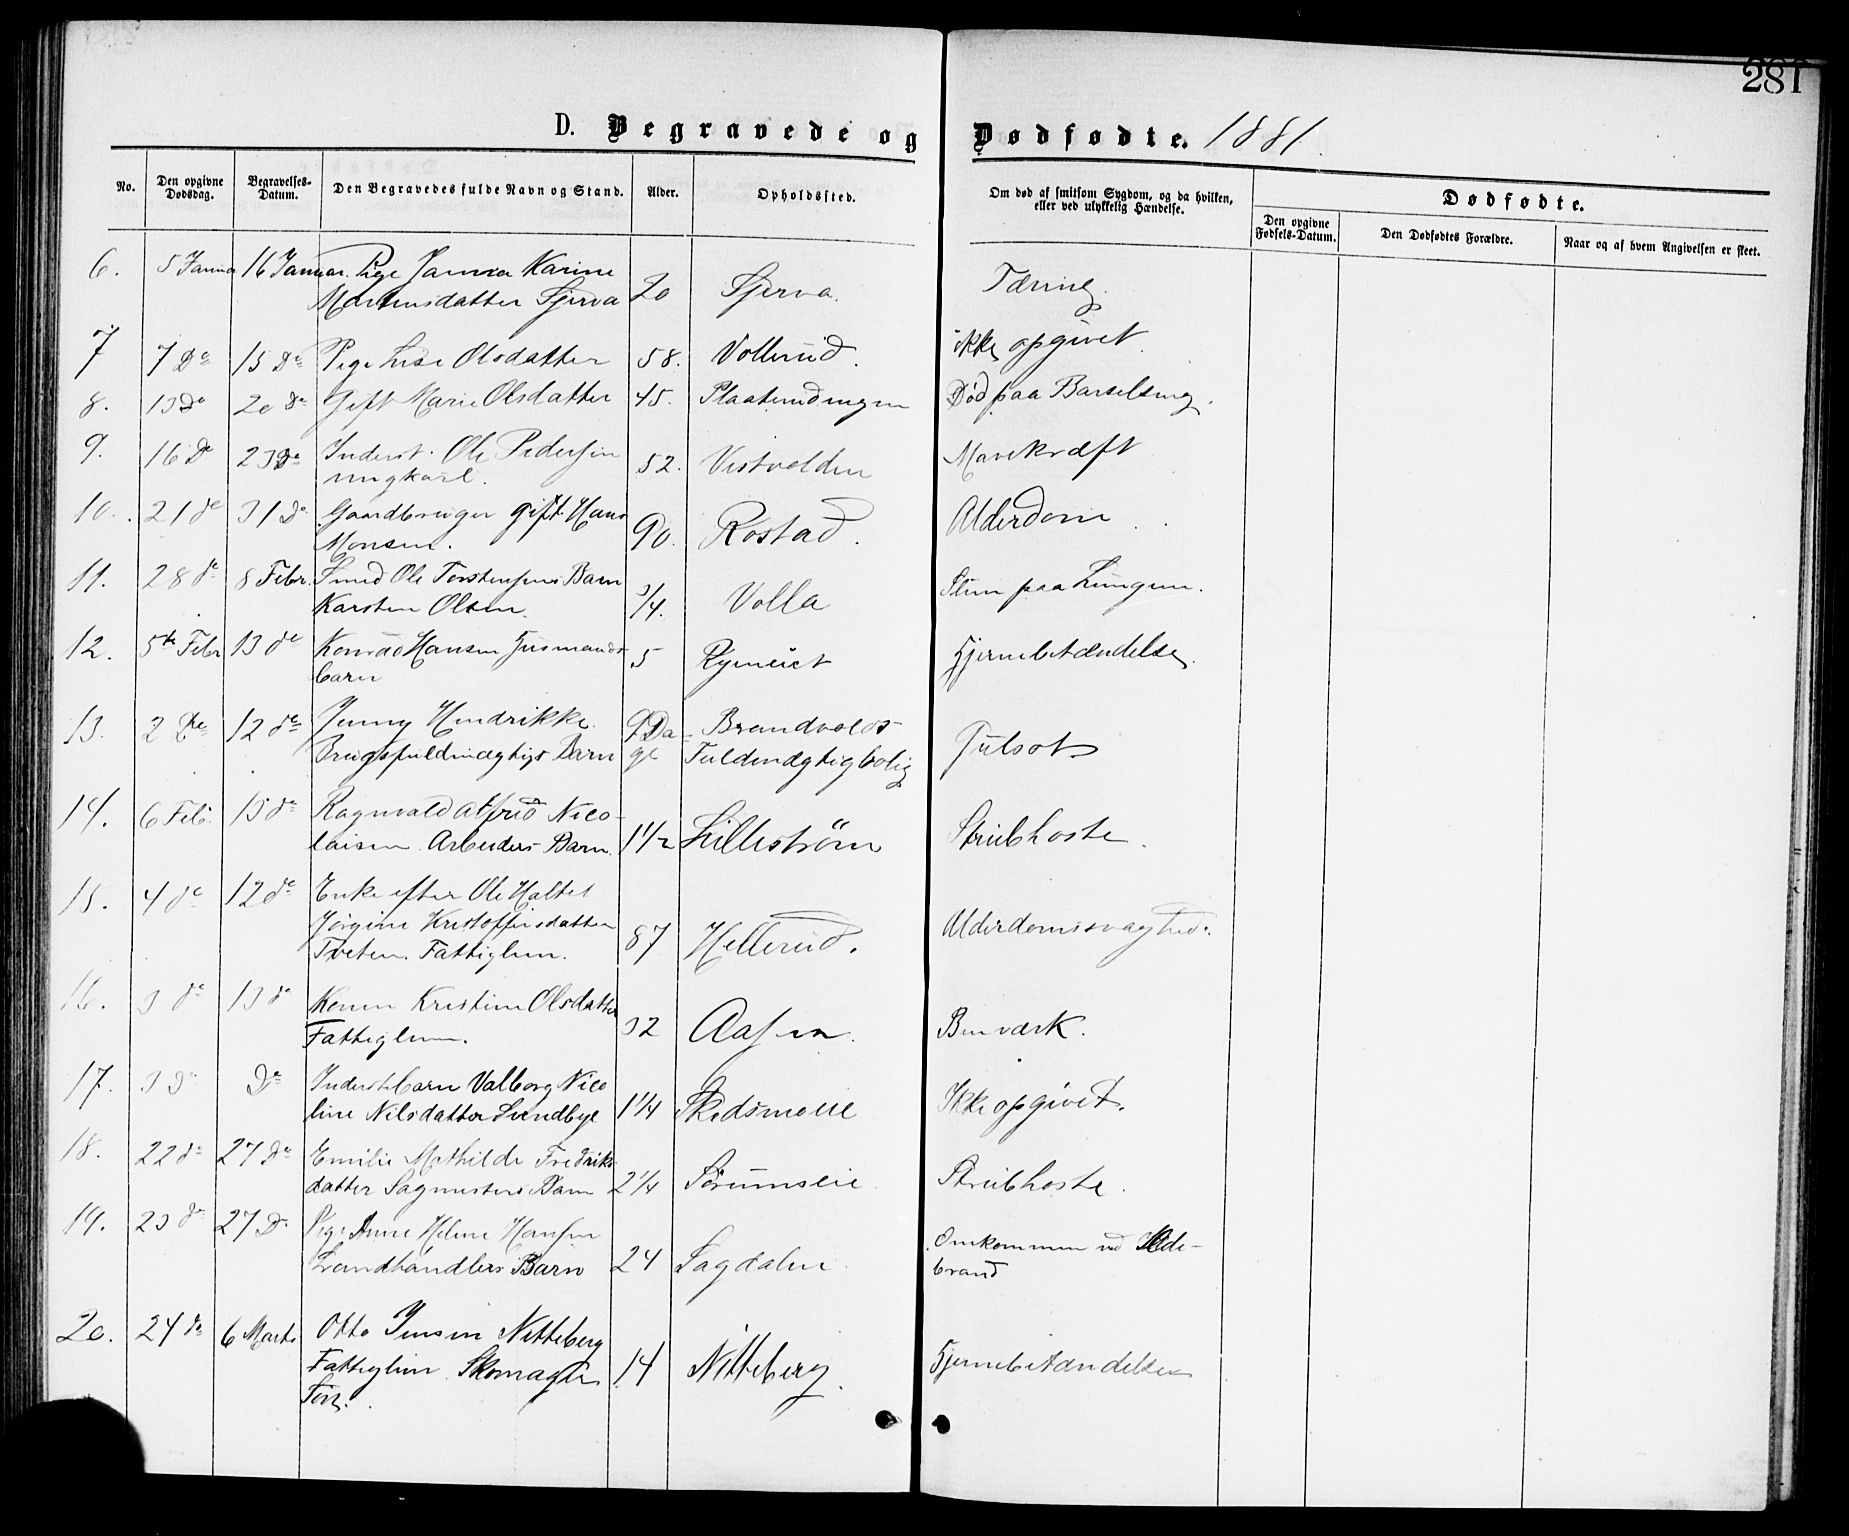 281
D. Begravede og Dødfødte. 1881.
No. Den opgivne Dødsdag. Begravelses-Datum. Den Begravedes fulde Navn og Stand. Alder. Opholdssted. Om død af smitsom Sygdom, og da hvilken, eller ved ulykkelig Hændelse. Dødfødte.
Den opgivne Fødsels-Datum. Den Dødfødtes Forældre. Naar og af hvem Angivelsen er skeet.
6. 5 Januar 16 Januar. Pige Karine
Martinsdatter Sjerva 20 Sjerva. Tæring
7 7 De 15 De Pige Lise Olsdatter 58. Vollerud. ikke opgivet
8. 13 de 20 de Gift Marie Olsdatter 45. Død paa Barselseng.
9. 16 De 23 de Inderst. Ole Pedersen
ungkarl. 52. Vestvolden Mavekræft
10. 21 de 31 De Gaardbruger gift Hans
Monsen. 90. Rostad. Alderdom
11. 28 de 8 Febr. Smed Ole Torstensens Barn
Karsten Olsen. 3/4. Volla Slim paa Lungen.
12. 5te Febr 13 de Konrad Hansen Husmands
barn 5 Ryeneiet Hjernebetændelse.
13. 2 De 12 de Jenny Hendrikke.
Brugsfuldmægtigs Barn 9 Da-
ge Brandvolds
Fuldmægtigbolig Gulsot
14. 6 Feb. 15 de Ragnvald Alfred Nico-
laisen Arbeiders Barn. 1 1/2 Lillestrøm Strubhoste.
15. 4 de 12 de Enke efter Ole Haltet
Jørgine Kristoffersdatter
Tveten. Fattiglem. 87 Hellerud. Alderdomssvaghed.
16. 3 de 13 de Karen Kristine Olsdatter
Fattiglem. 32 Aasen. Benværk.
17. 3 De De Inderstebarn Valborg Nico
line Nilsdatter Sundbye 1 1/4 Skedsmoeie Ikke opgivet.
18. 22 de 27 De Emilie Mathilde Fredriks
datter Sagmesters Barn 2 1/4 Sørumseie Strubhoste.
19. 23 de 27 De Pige Anne Helene Hansen
Landhandlers Barn 24 Sagdalen. Omkommen ved Ilde-
brand
20. 24 de 6 Marts Otto Jensen Nitteberg
Fattiglem Skomager
Søn. 14 Nitteberg. Hjernebetændelse